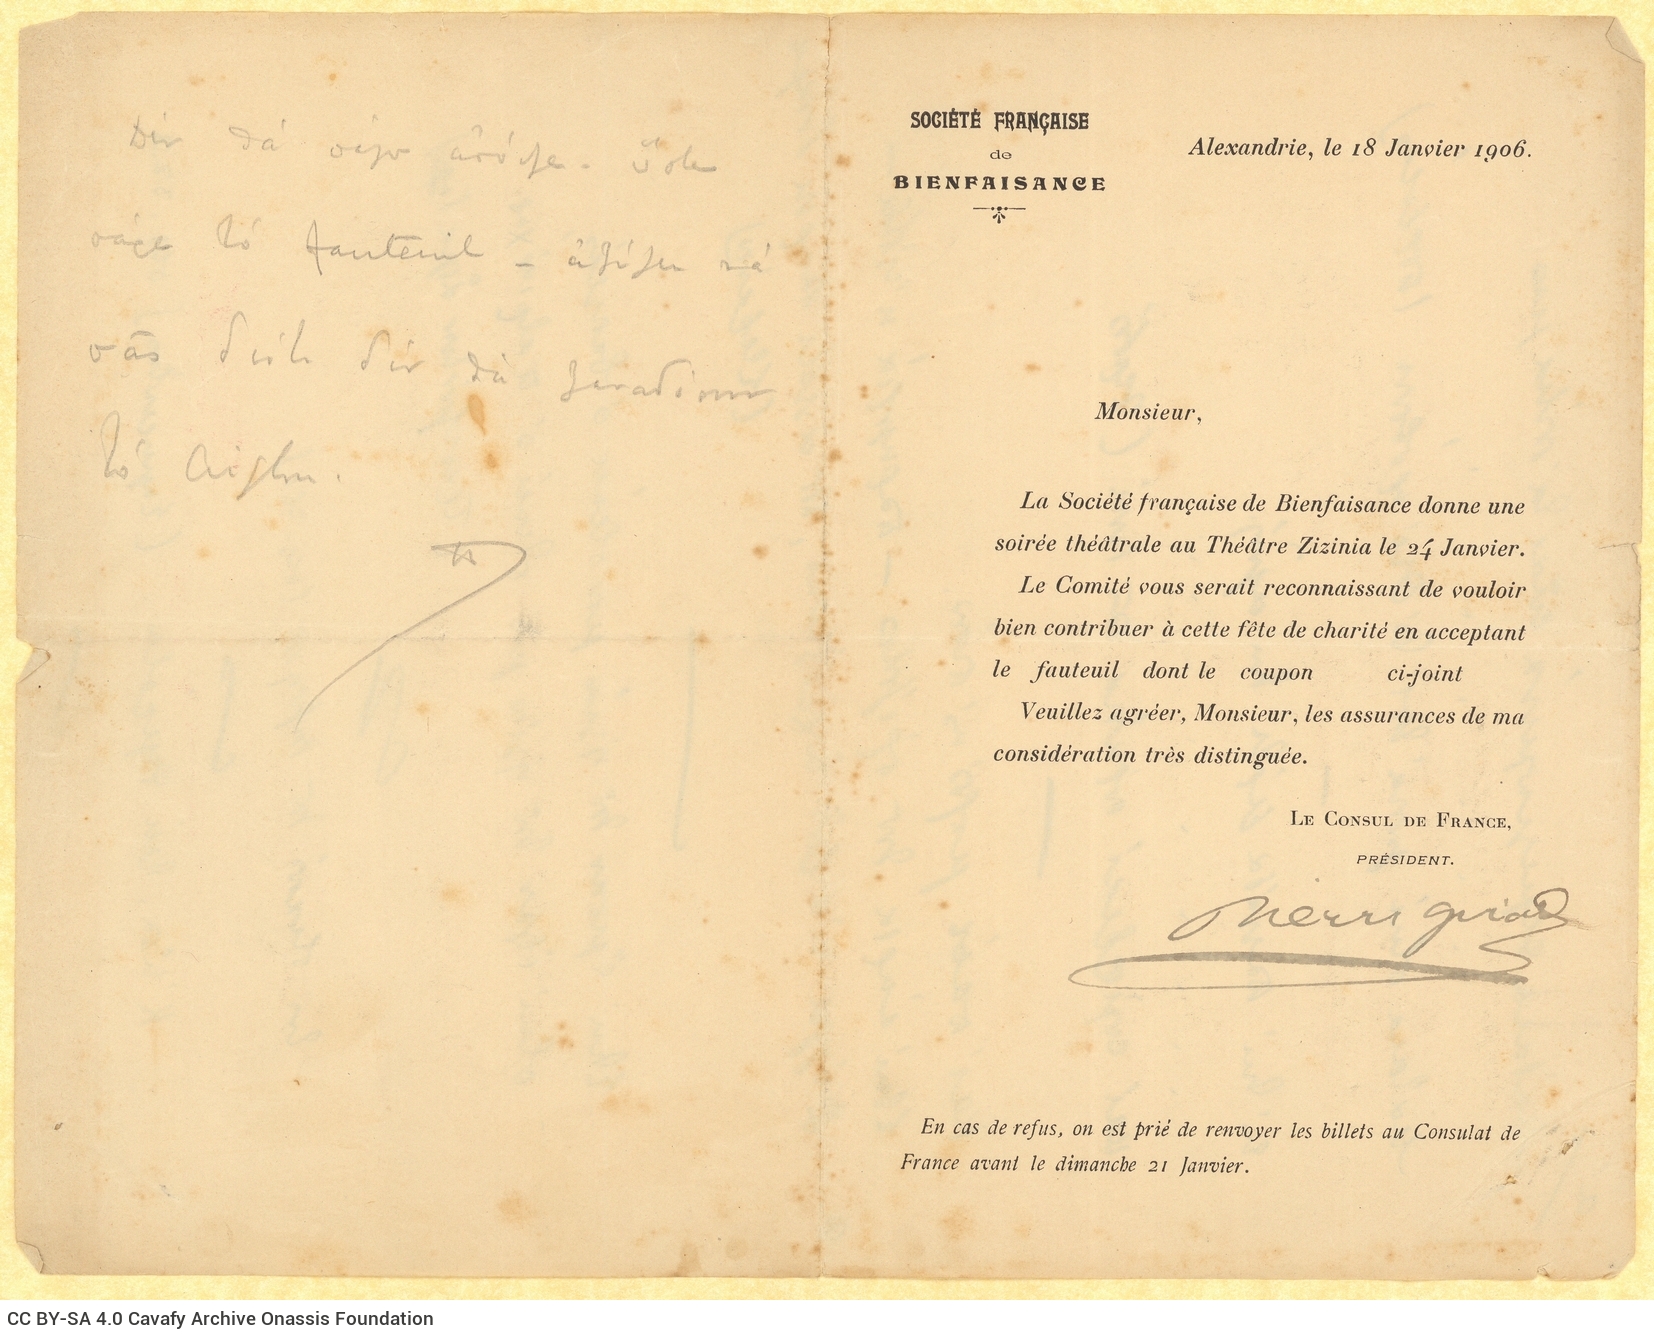 Δεν θα
το fauteuil –
σας
το Aiglon.
SOCIÉTÉ FRANÇAISE
de
BIENFAISANCE
Alexandrie, le 18 Janvier 1906.
Monsieur,
La Société française de Bienfaisance donne une
soirée théâtrale au Théâtre Zizinia le 24 Janvier.
Le Comité vous serait reconnaissant de vouloir
bien contribuer à cette fête de charité en acceptant
le fauteuil dont le coupon ci-joint
Veuillez agréer, Monsieur, les assurances de ma
considération très distinguée.
LE CONSUL DE FRANCE,
PRÉSIDENT.
En cas de refus, on est prié de renvoyer les billets au Consulat de
France avant le dimanche 21 Janvier.
CC BY-SA 4.0 Cavafy Archive Onassis Foundation